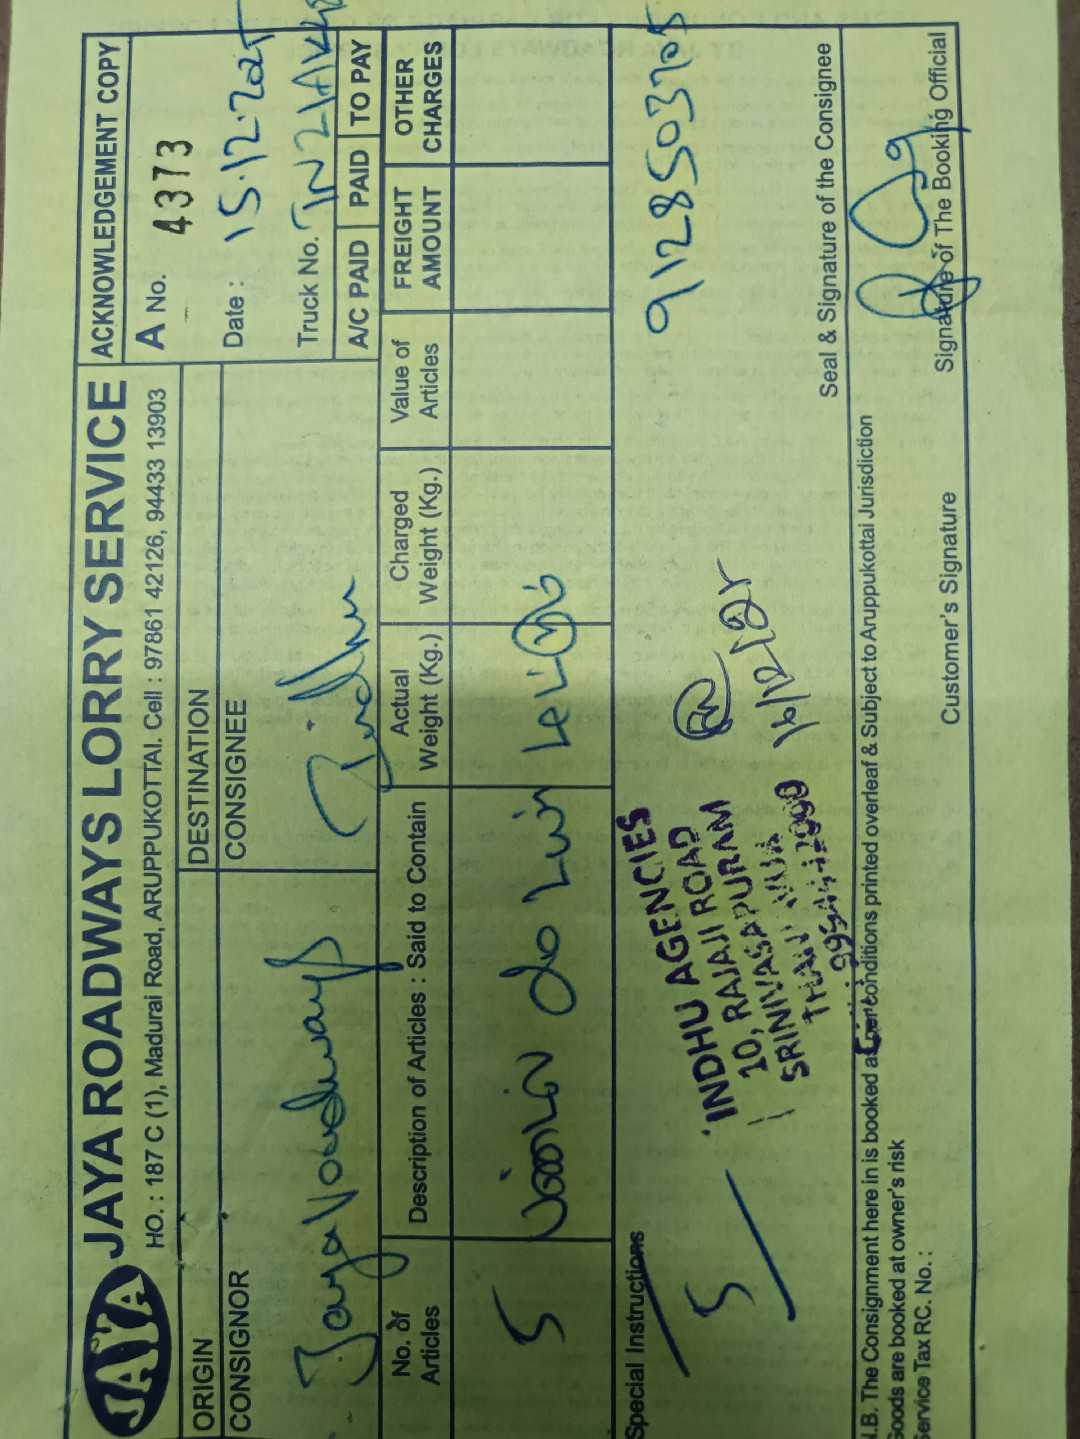 JAYA
JAYA ROADWAYS LORRY SERVICE
HO. : 187 C (1), Madurai Road, ARUPPUKOTTAI. Cell : 97861 42126, 94433 13903
ACKNOWLEDGEMENT COPY
A No. 4373
ORIGIN
DESTINATION
Date : 15.12.2025
CONSIGNOR
CONSIGNEE
Truck No. TN21AK
Jaya Roadways
Indhu
A/C PAID PAID TO PAY
No. of Articles
Description of Articles : Said to Contain
Actual Weight (Kg.)
Charged Weight (Kg.)
Value of Articles
FREIGHT AMOUNT
OTHER CHARGES
5
Special Instructions
5
9128503705
INDHU AGENCIES
10, RAJAJI ROAD
SRINIVASAPURAM
16/12/25
Seal & Signature of the Consignee
N.B. The Consignment here in is booked as per conditions printed overleaf & Subject to Aruppukottai Jurisdiction
Goods are booked at owner's risk
Service Tax RC. No. :
Customer's Signature
Signature of The Booking Official